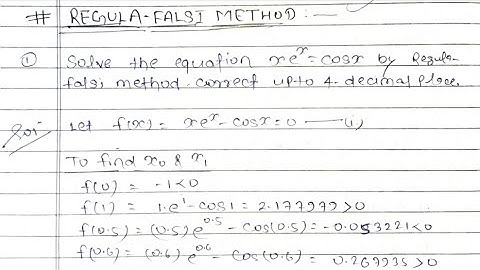 # REGULA-FALSI METHOD :—
① Solve the equation xeˣ = cosx by Regula-
falsi method correct upto 4-decimal place.
Solⁿ Let f(x) = xeˣ - cosx = 0 —(i)
To find x₀ & x₁
f(0) = -1<0
f(1) = 1.e¹ - cos1 = 2.177979>0
f(0.5) = (0.5)e^0.5 - cos(0.5) = -0.053221<0
f(0.6) = (0.6)e^0.6 - cos(0.6) = 0.267935>0